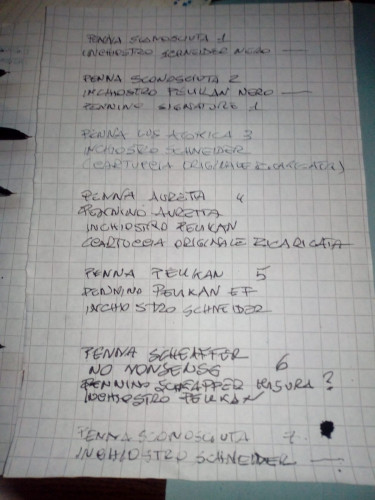 PENNA SCONOSCIUTA 1
INCHIOSTRO SCHNEIDER NERO —
PENNA SCONOSCIUTA 2
INCHIOSTRO PELIKAN NERO —
PENNINO SIGNATURE 1
PENNA LUS ATOMICA 3
INCHIOSTRO SCHNEIDER
(CARTUCCIA ORIGINALE RICARICATA)
PENNA AURETTA 4
PENNINO AURETTA
INCHIOSTRO PELIKAN
CARTUCCIA ORIGINALE RICARICATA
PENNA PELIKAN 5
PENNINO PELIKAN EF
INCHIOSTRO SCHNEIDER
PENNA SCHEAFFER
NO NONSENSE 6
PENNINO SCHEAFFER MISURA ?
INCHIOSTRO PELIKAN
PENNA SCONOSCIUTA 7
INCHIOSTRO SCHNEIDER —